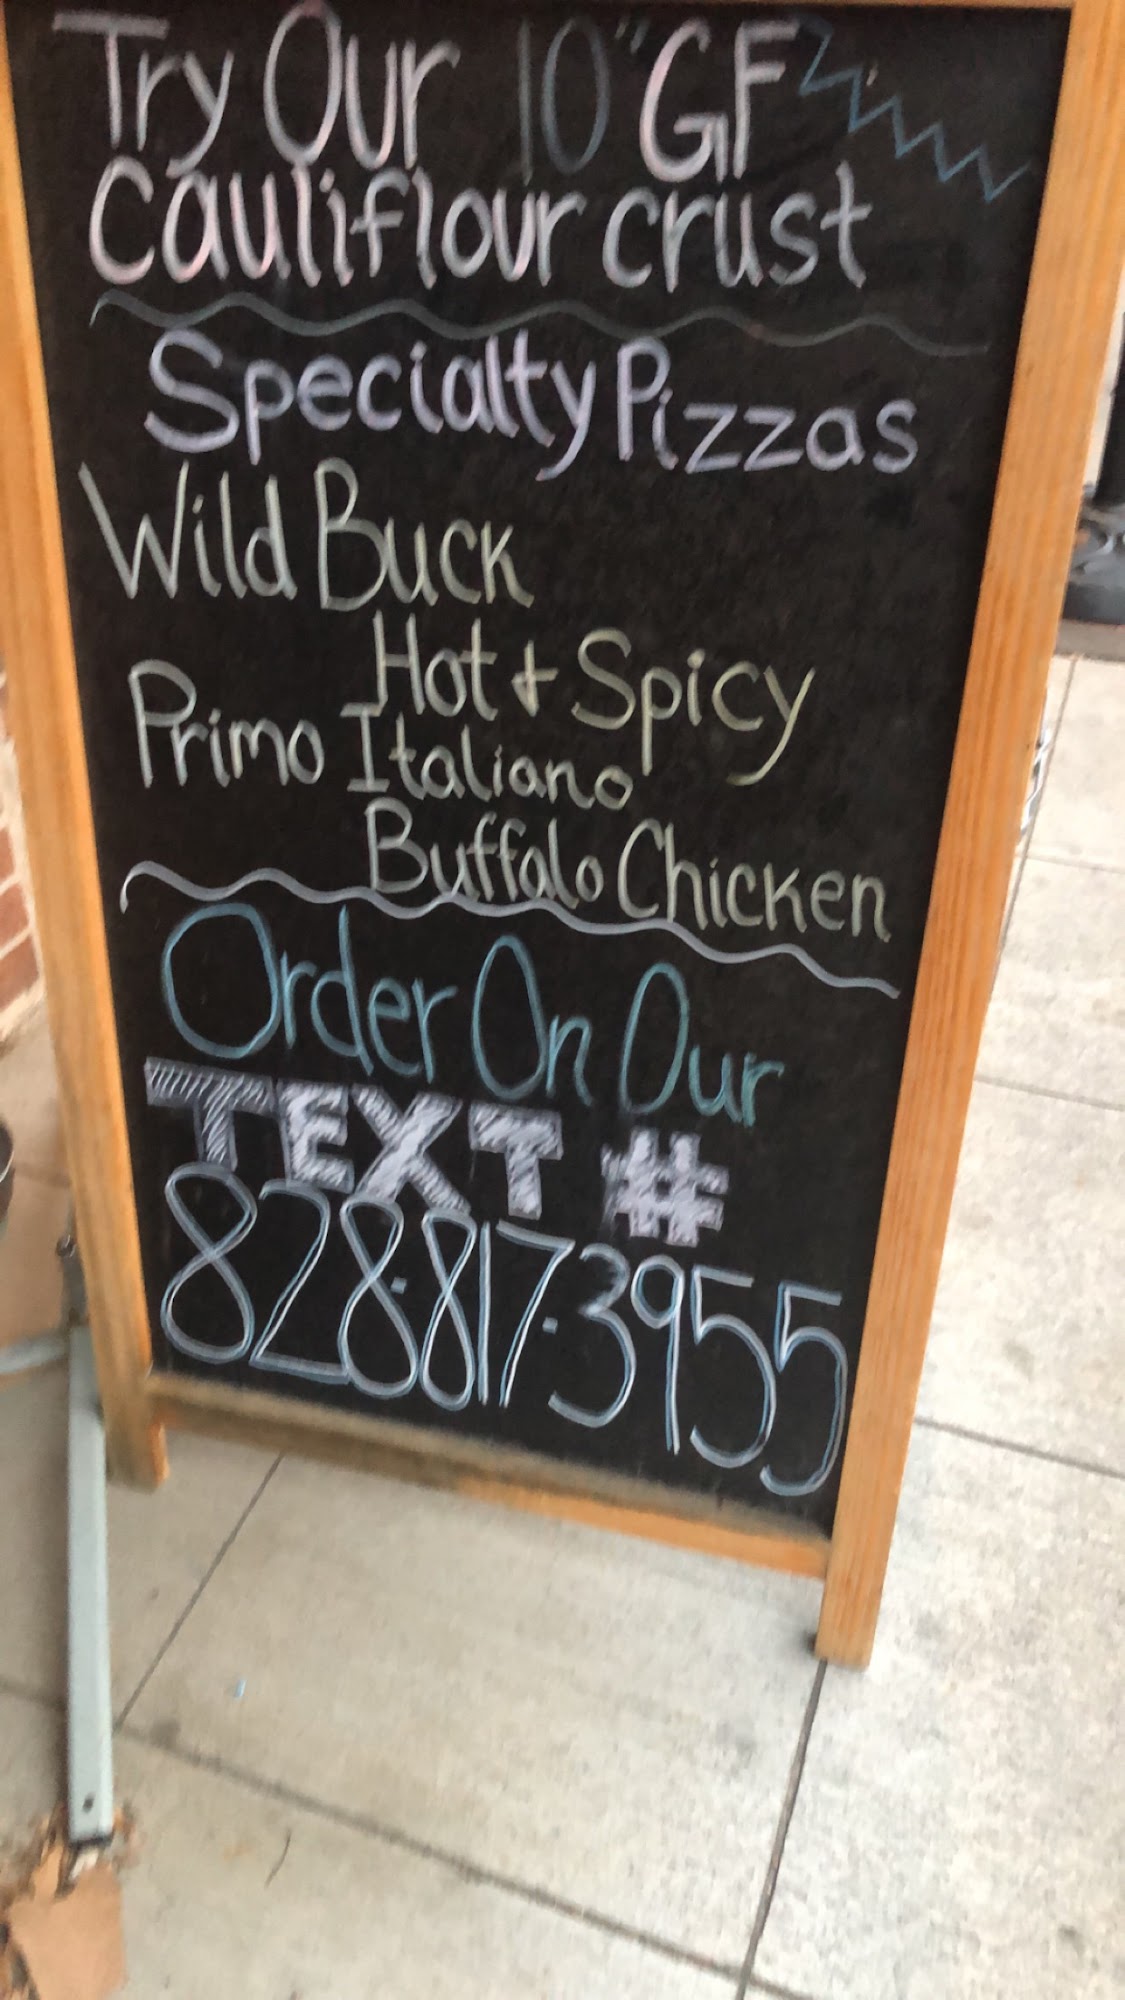 Try Our 10" GF
Cauliflour crust
Specialty Pizzas
Wild Buck
Hot + Spicy
Primo Italiano
Buffalo Chicken
Order On Our
TEXT #
828.817.3955